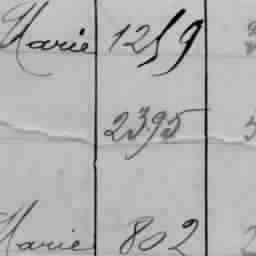 Marie 1259
2395
Marie 802